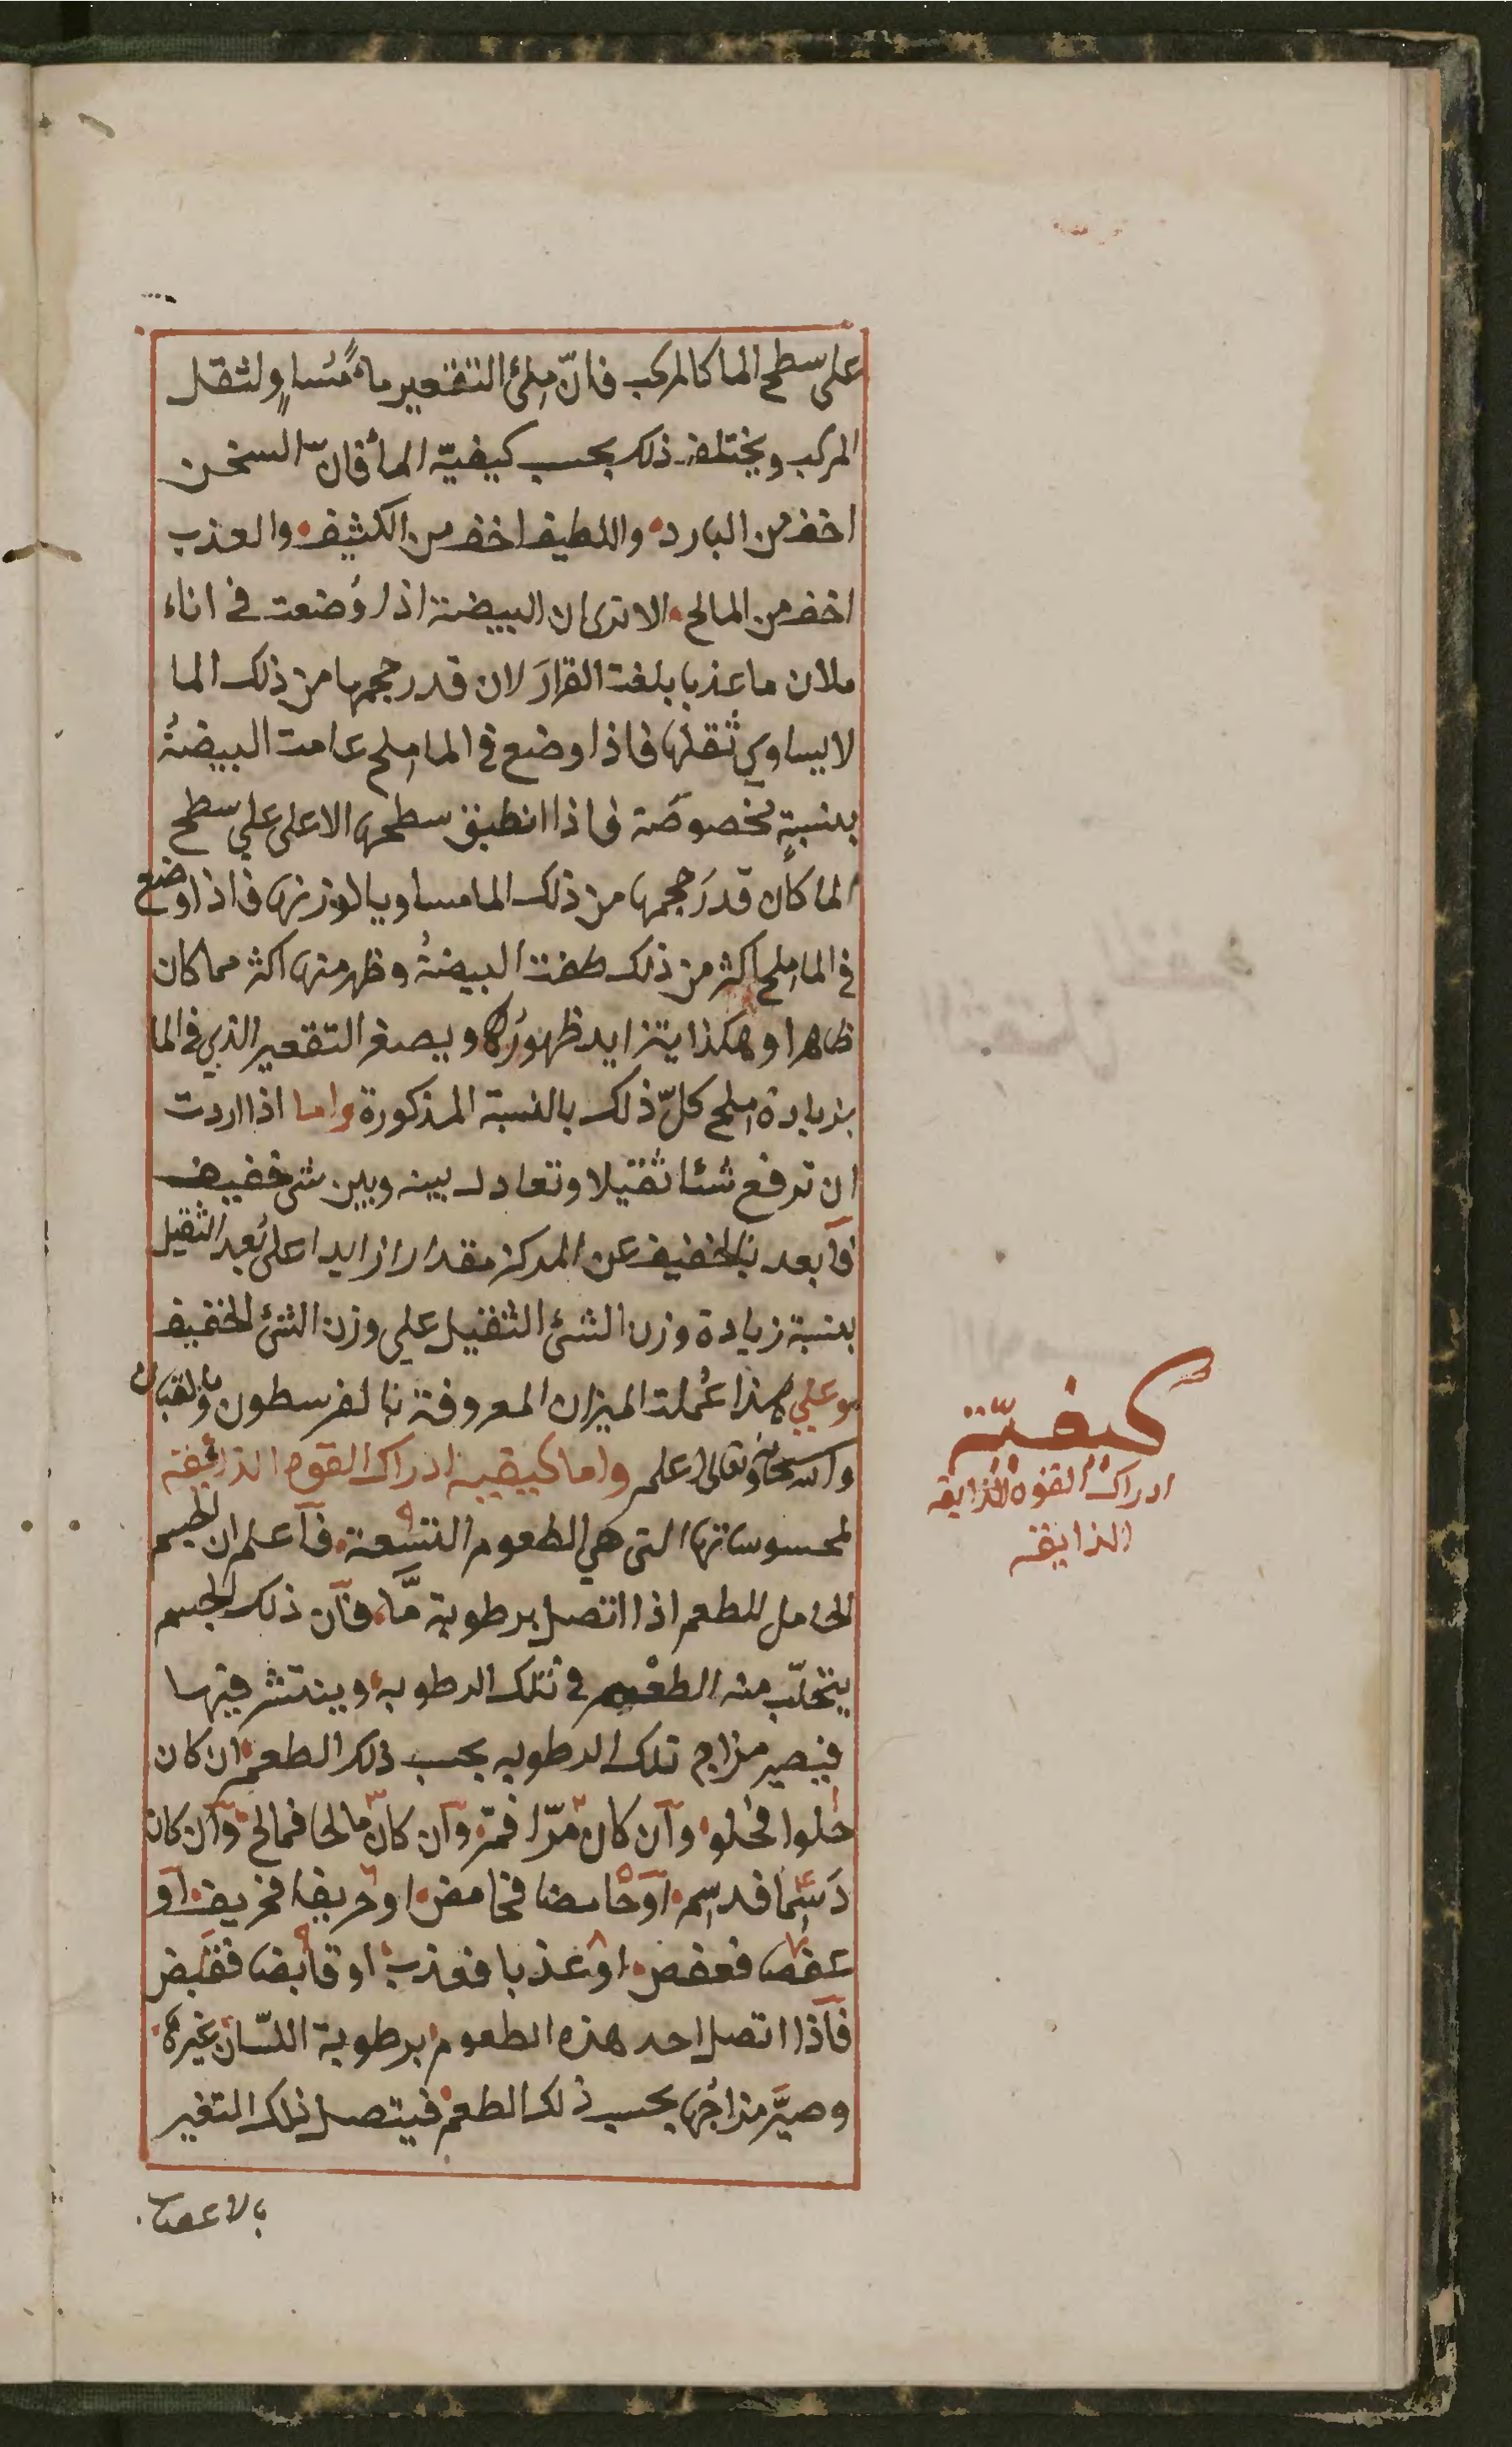 على سطح الما كالمركب فانّ ملئ التقعير ماءً مُساوٍ لثقل
المركب ويختلف ذلك بحسب كيفيّة الماء فانّ السخن
اخف من البارد واللطيف اخف من الكثيف والعذب
اخف من المالح الا ترى ان البيضة اذا وُضعت في اناء
ملان ما عذبا بلغت القرارَ لان قدر حجمها من ذلك الما
لا يساوي ثُقلها فاذا وضع في الما ملح عامت البيضةُ
بنسبةٍ مخصوصَة فاذا انطبق سطحها الاعلى علي سطح
الما كان قدرَ حجمها من ذلك الما مساويا لوزنها فاذا وضع
في الما ملح اكثر من ذلك طفت البيضةُ وظهر منها اكثر مما كان
ظاهرا وهكذا يتزايد ظهورُها ويصغر التقعير الذي في الما
بزيادة ملح كلّ ذلك بالنسبة المذكورة واما اذا اردت
ان ترفع شئا ثقيلا وتعادل بينه وبين شئ خفيف
فابعد بالخفيف عن المركز مقدارا زايدا على بُعد الثقيل
بنسبة زيادة وزن الشئ الثقيل علي وزن الشئ الخفيف
وعلي هذا عُملت الميزان المعروفة بالفرسطون والقبان
والله سبحانه وتعالى اعلم واما كيفية ادراك القوه الذائقة
لمحسوساتها التى هي الطعوم التسعة فآعلم ان الجسم
الحامل للطعم اذا اتصل برطوبة مَّا فان ذلك الجسم
يتحلّب منه الطعْم في تلك الرطوبه وينتشر فيها
فيصير مزاج تلك الرطوبه بحسب ذلك الطعم ان كان
حُلوا فحُلو وآن كان مّرا فمرّ وآن كان مالحا فمالح وآن كان
دَسِما فدسِم آو حامضا فحامض او حريفا فحريف آو
عفصا فعفص او عذبا فعذب او قابضا فقابض
فآذا اتصل احد هذه الطعوم برطوبة اللسّان غيرها
وصيَّر مزاجُها بحسب ذلك الطعم فيتصل ذلك التغير
بالاعصاب
كيفيّة
ادراك القوه الذايقه
الذايقه